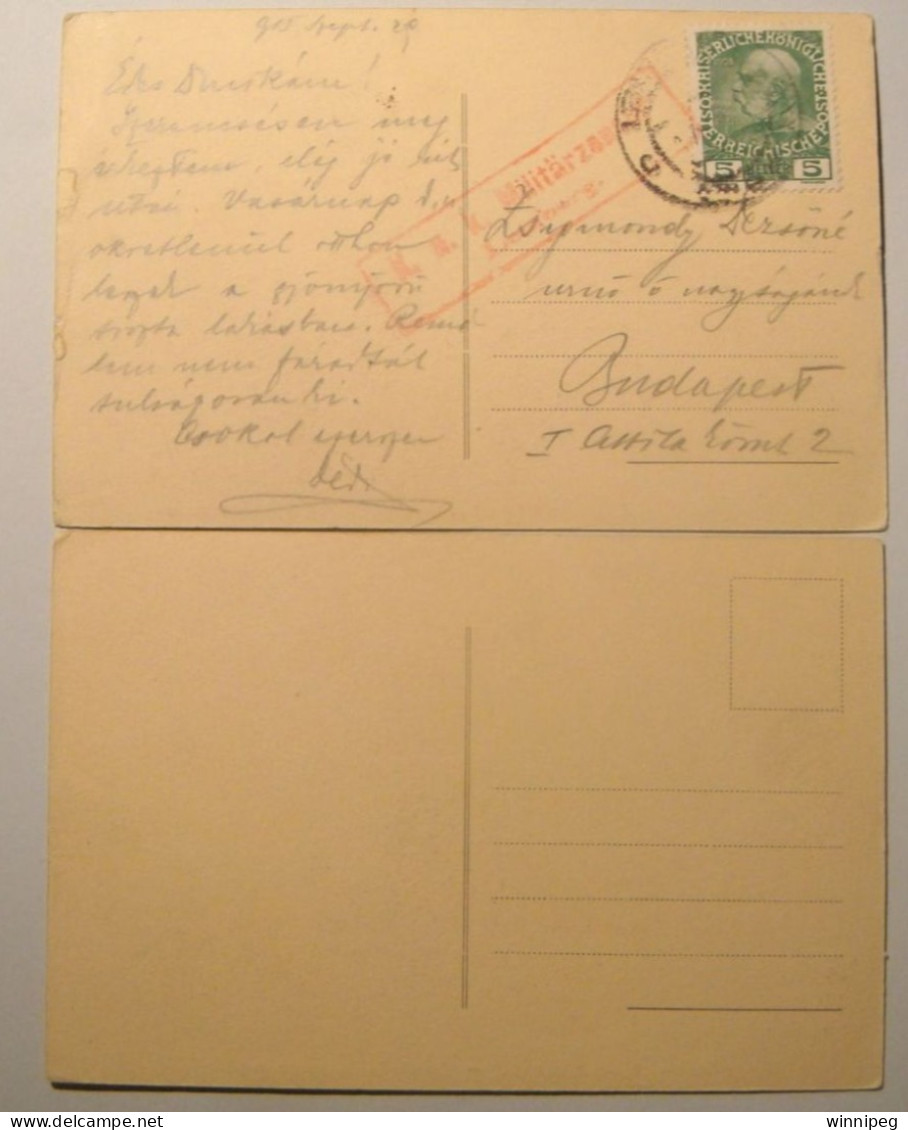 915 Szept. 29
Édes Duskám!
Szerencsésen meg
érkeztem, elég jó
után. Vasárnap d.u.
okvetlenül otthon
leszek a gyönyörű
tiszta lakásban. Remé
lem nem fáradtál
tulságosan ki.
Csókol ezerszer
K. u. K. Militärzensur
KAISERLICHE KÖNIGLICHE ÖSTERREICHISCHE POST
5 5
Zsigmondy Dezsőné
urnő ő nagyságának
Budapest
I Attila körut 2
delcampe.net
winnipeg